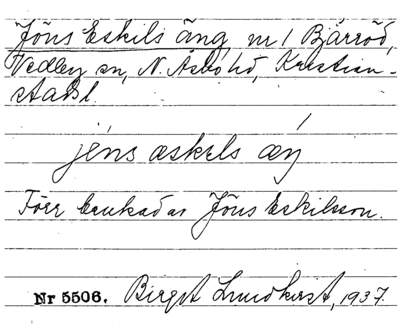 Jöns Eskils äng, nr 1 Bjärröd,
Vedby sn, N. Åsbo hd, Kristian-
stads l.
jèns æskɩls æ´ŋ
Förr brukad av Jöns Eskilsson.
Nr 5506. Birgit Lundkvist, 1937.